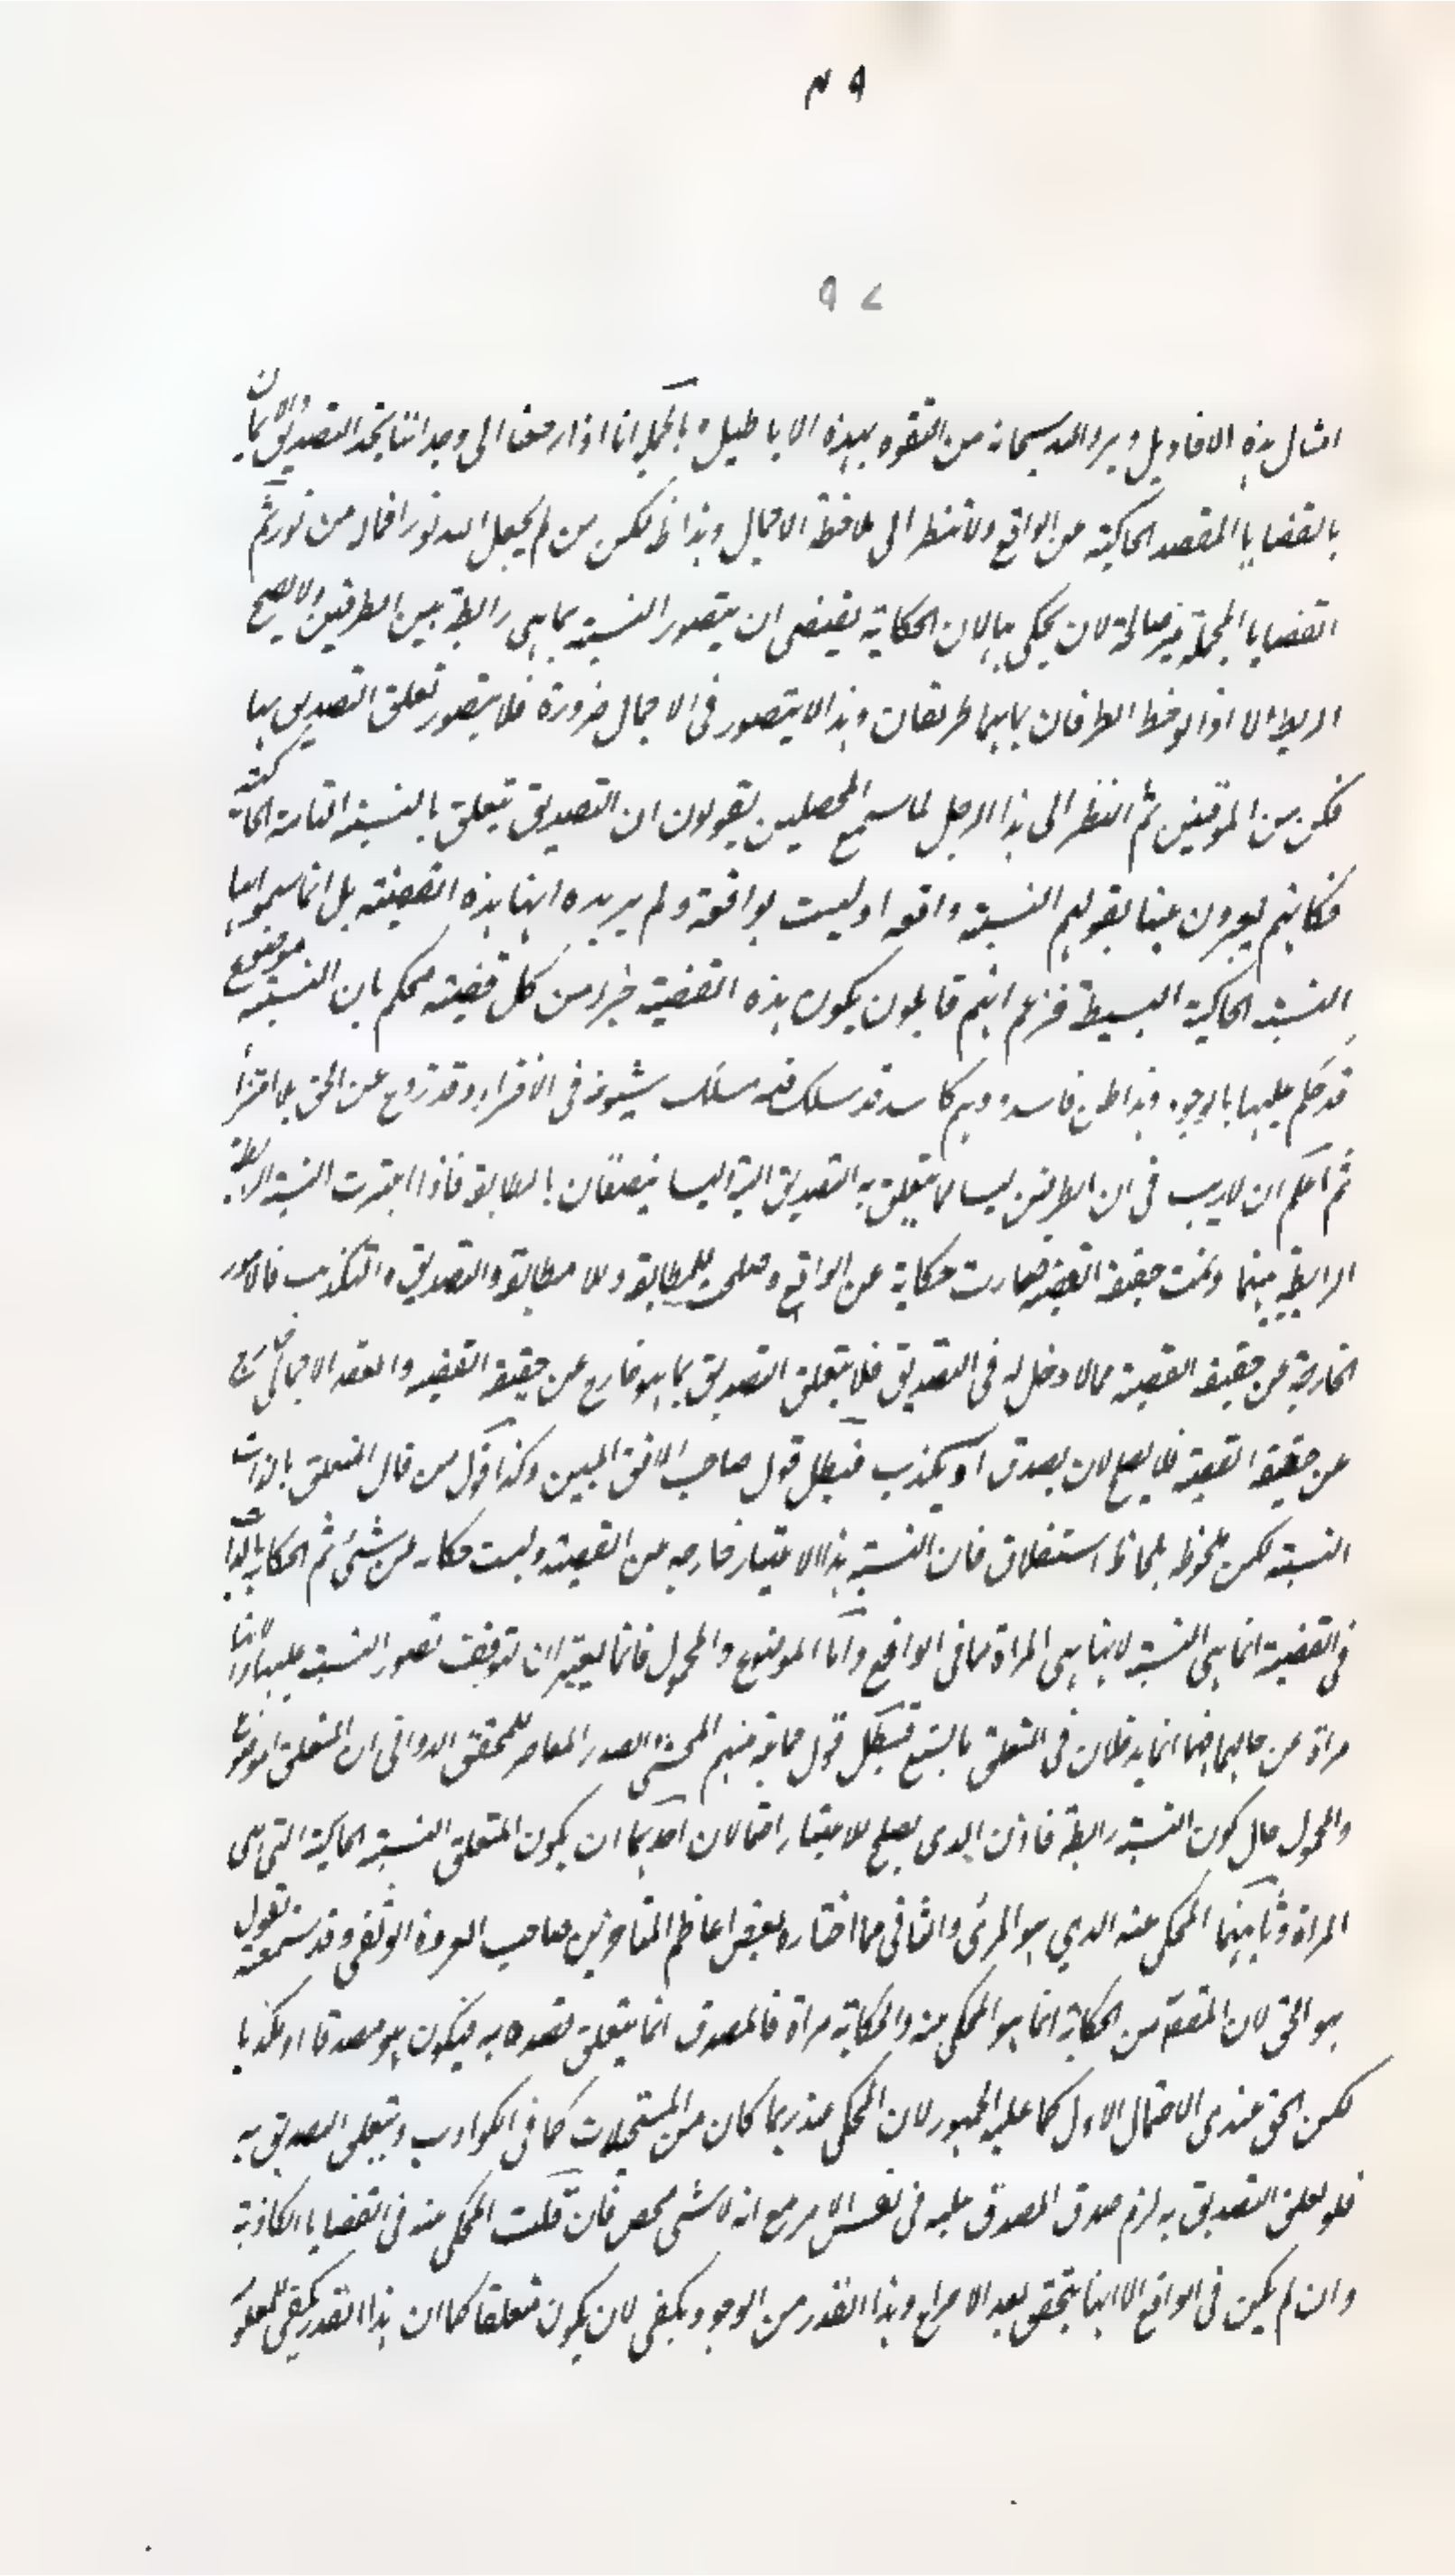 ٩٣
٩٧
امثال هذه الاقاويل ويرد الله سبحانه من التفوه بهذه الاباطيل وبالجملة انا اذا رجعنا الى وجداننا نجد التصديق والاذعان
بالقضايا المقصد الحاكية عن الواقع ولا تنظر الى ملاحظة الاجمال وهذا ظ لكن من لم يجعل الله نورا فماله من نور ثم
القضايا المجملة غير صالحة لان يحكى بها لان الحكاية يقتضى ان يتصور النسبة بما هى رابطة بين الطرفين ولا يصح
الربط الا اذا لوحظ الطرفان بما هما طرفان وهذا لا يتصور فى الاجمال ضرورة فلا يتصور تعلق التصديق بها
فكن من الموقنين ثم النظر الى هذا الرجل لما سمع المحصلين يقولون ان التصديق يتعلق بالنسبة التامة الحاكية
فكانهم يعبرون عنها بقولهم النسبة واقعة او ليست بواقعة ولم يريدوا بهذه القضية بل انما يسموا بها
النسبة الحاكية البسيطة فزعم انهم قائلون بكون هذه القضية جزء من كل قضية محكم بان النسبة موضوع
قد حكم عليها بالوجود وهذا ظن فاسد ووهم كاسد قد سلك فيه مسلك شيوخه فى الافتراء وقد زوع عن الحق بما افترأ
ثم اعلم ان لا ريب فى ان الطرفين ليسا مما يتعلق به التصديق ليسا يتصفان بالمطابقة فاذا اعتبرت النسبة الرابطة
الرابطة بينهما وتمت حقيقة القضية صارت حكاية عن الواقع وصلح للمطابقة وللا مطابقة والتصديق والتكذيب فالامور
الخارجة عن حقيقة القضية مما لا دخل له فى التصديق فلا يتعلق التصديق بما هو خارج عن حقيقة القضية والعقد الاجمالى خارج
عن حقيقة القضية فلا يصلح لان يصدق او يكذب فبطل قول صاحب الافق المبين وكذا قول من قال المتعلق بالذات
النسبة لكن ملحوظ بلحاظ استقلالى فان النسبة بهذا الاعتبار خارجة من القضية وليست حكاية عن شئ ثم الحكاية بالذات
فى القضية انما هى النسبة لانها هى المراة لما فى الواقع واما الموضوع والمحمول فانما يعتبران لتوقف تصور النسبة عليهما لا انها
مراة عن حالهما فهما انما يدخلان فى التعلق بالتبع فبطل قول جماعة منهم المحشى الصدر المعاصر للمحقق الدوانى ان المتعلق الموضوع
والمحمول حال كون النسبة رابطة فاذن الذى يصلح للاعتبار احتمالان احدهما ان يكون المتعلق النسبة الحاكية التى هى
المراة وثانيهما المحكى عنه الذى هو المرئى والثانى مما اختاره بعض اعاظم المتاخرين صاحب العروة الوثقى وقد سمعته يقول
هو الحق لان المقصود من الحكاية انما هو المحكى عنه والحكاية مراة فالمصدق انما يتعلق قصده به فيكون هو مصدقا او مكذبا
لكن الحق عندى الاحتمال الاول كما عليه الجمهور لان المحكى عنه ربما كان من المستحيلات كما فى الكواذب ويتعلق التصديق به
فلو تعلق التصديق به لزم صدق المصدق عليه فى نفس الامر مع انه لا شى محض فان قلت المحكى عنه فى القضايا الكاذبة
وان لم يكن فى الواقع الا انها يتحقق بعد الاختراع وهذا القدر من الوجود يكفى لان يكون متعلقا كما ان هذا القدر يكفى